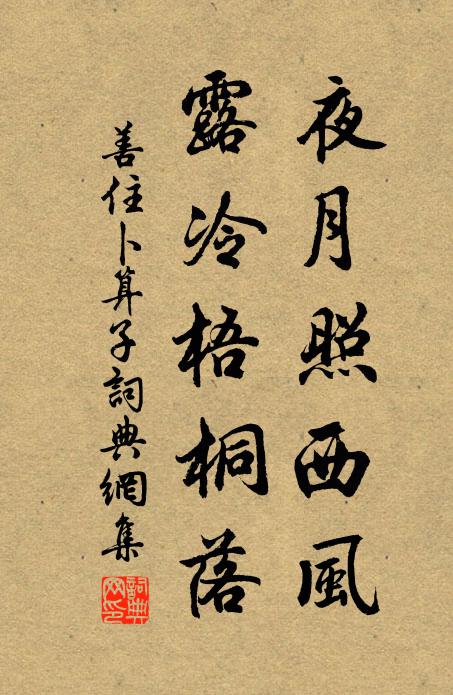 夜月照西風
露冷梧桐落
善住卜算子詞典網集
詞典
网印